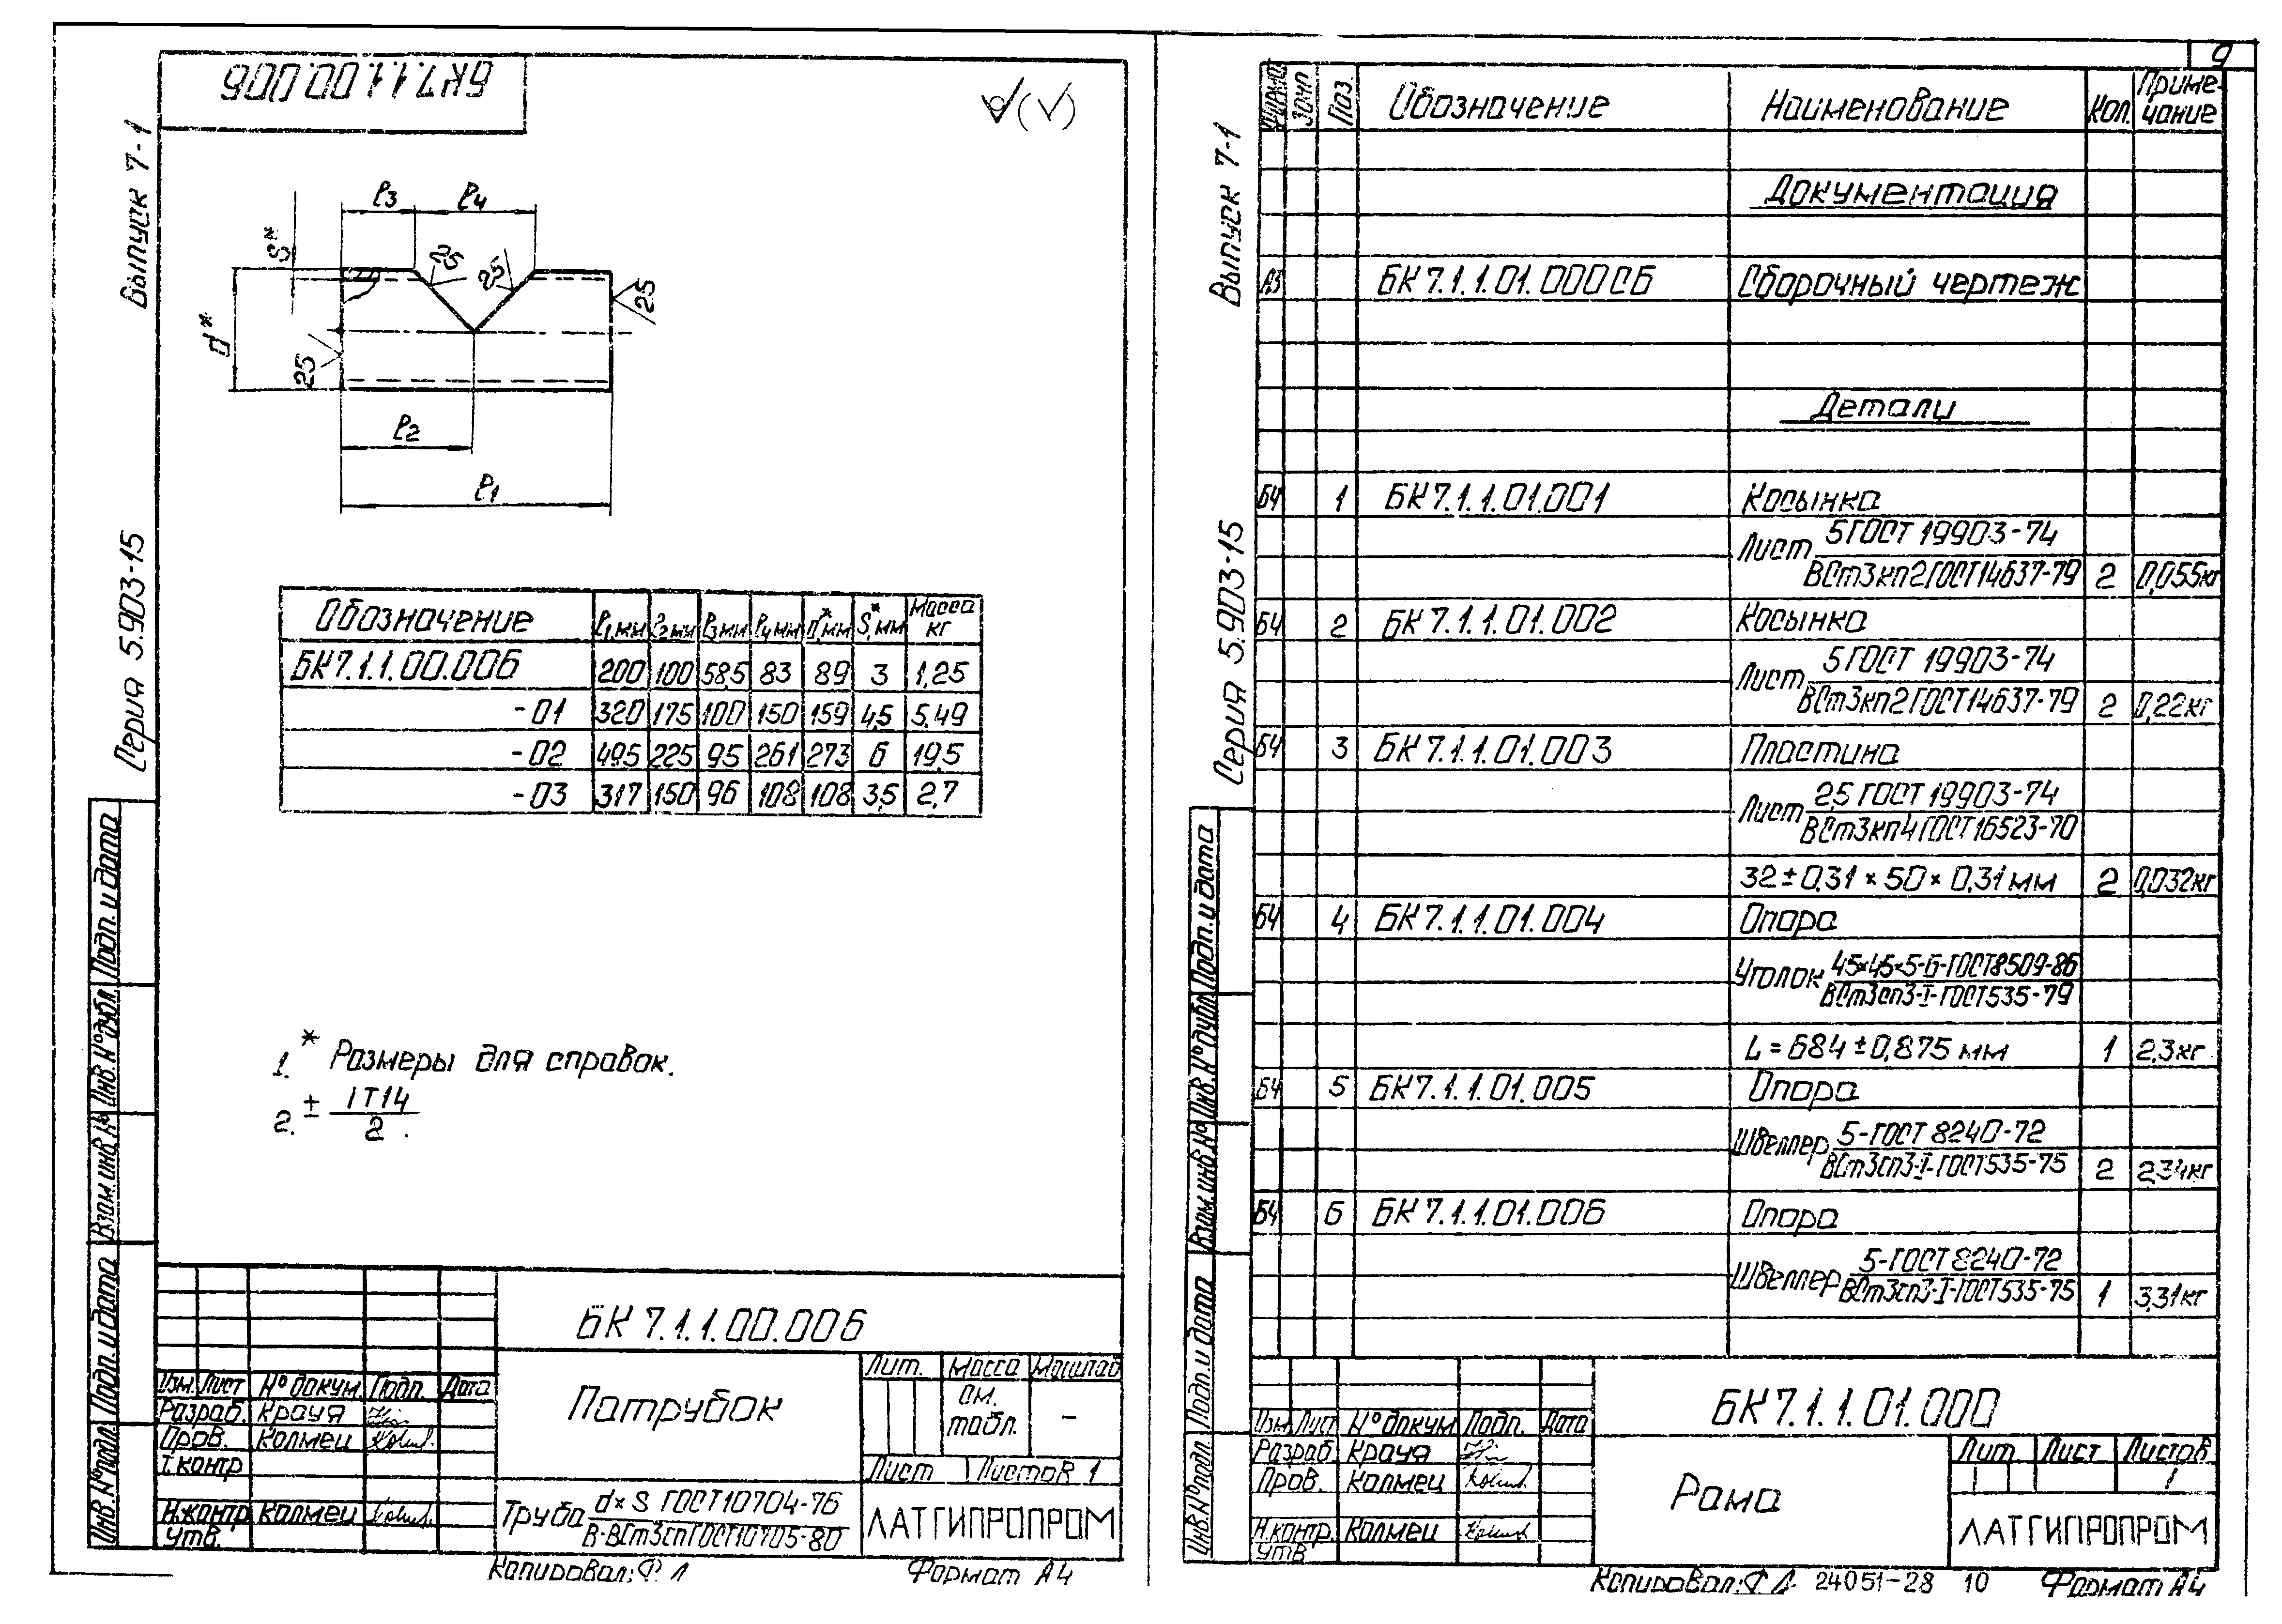 БК7.1.1.00.006
Выпуск 7-1
Серия 5.903-15
ℓ3
ℓ4
S*
25
25
25
d*
25
ℓ2
ℓ1
Обозначение ℓ1,мм ℓ2мм ℓ3мм ℓ4мм d*,мм S*,мм Масса кг
БК7.1.1.00.006 200 100 58,5 83 89 3 1,25
-01 320 175 100 150 159 4,5 5,49
-02 495 225 95 261 273 6 19,5
-03 317 150 96 108 108 3,5 2,7
1. * Размеры для справок.
2. ± IT14
2.
Подп. и дата
Инв. № дубл.
Взам. инв. №
Подп. и дата
Инв. № подл.
БК 7.1.1.00.006
Изм. Лист № докум. Подп. Дата
Разраб. Крауя
Пров. Колмец
Т.контр
Н.контр Колмец
Утв.
Патрубок
Лит. Масса Масштаб
См. табл. –
Лист Листов 1
Труба d×S ГОСТ10704-76
В-ВСт3сп ГОСТ10705-80
ЛАТГИПРОПРОМ
Копировал: Ф.Л Формат А4
9
Выпуск 7-1
Серия 5.903-15
Формат Зона Поз. Обозначение Наименование Кол. Приме-
чание
Документация
А3 БК7.1.1.01.000СБ Сборочный чертеж
Детали
Б4 1 БК7.1.1.01.001 Косынка
Лист 5 ГОСТ 19903-74
ВСт3кп2 ГОСТ14637-79 2 0,055кг
Б4 2 БК7.1.1.01.002 Косынка
Лист 5 ГОСТ 19903-74
ВСт3кп2 ГОСТ14637-79 2 0,22кг
Б4 3 БК7.1.1.01.003 Пластина
Лист 2,5 ГОСТ 19903-74
ВСт3кп4 ГОСТ16523-70
32±0,31×50×0,31мм 2 0,032кг
Б4 4 БК7.1.1.01.004 Опора
Уголок 45×45×5-Б-ГОСТ8509-86
ВСт3сп3-I-ГОСТ535-79
L=684±0,875мм 1 2,3кг
Б4 5 БК7.1.1.01.005 Опора
Швеллер 5-ГОСТ 8240-72
ВСт3сп3-I-ГОСТ535-75 2 2,34кг
Б4 6 БК7.1.1.01.006 Опора
Швеллер 5-ГОСТ 8240-72
ВСт3сп3-I-ГОСТ535-75 1 3,31кг
Подп. и дата
Инв. № дубл.
Взам. инв. №
Подп. и дата
Инв. № подл.
БК7.1.1.01.000
Изм. Лист № докум. Подп. Дата
Разраб. Крауя
Пров. Колмец
Н.контр. Колмец
Утв
Рама
Лит. Лист Листов
1
ЛАТГИПРОПРОМ
Копировал: Ф.Л. 24051-28 10 Формат А4